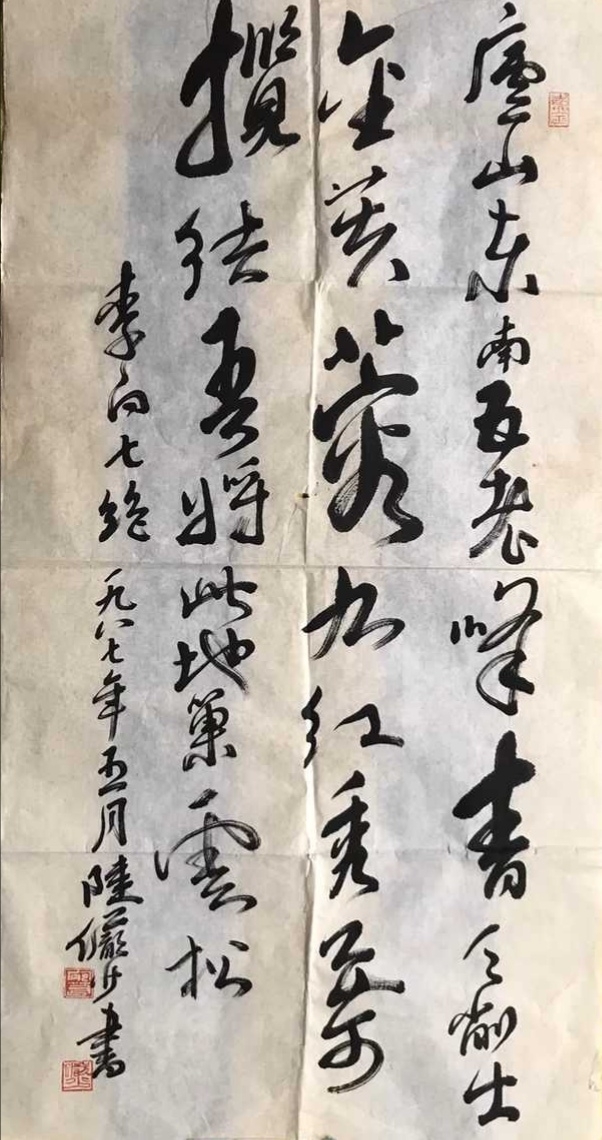 廬山東南五老峰青天削出
金芙蓉九江秀色可
攬結吾將此地巢雲松
李白七絕 一九八七年五月 陸儼少書